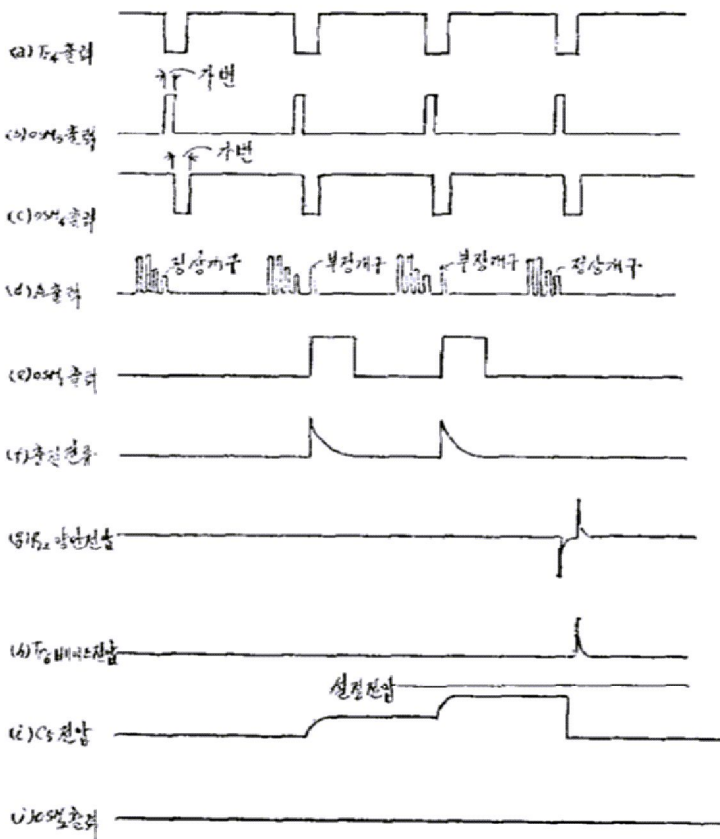 (a) Tr4출력
가변
(b) OSM3출력
가변
(c) OSM4출력
정상개구 부정개구 부정개구 정상개구
출력
(e) OSM 출력
(f) 충전전류
양단전압
(h) Tr6 베이스전압
설정전압
(i) C5전압
출력